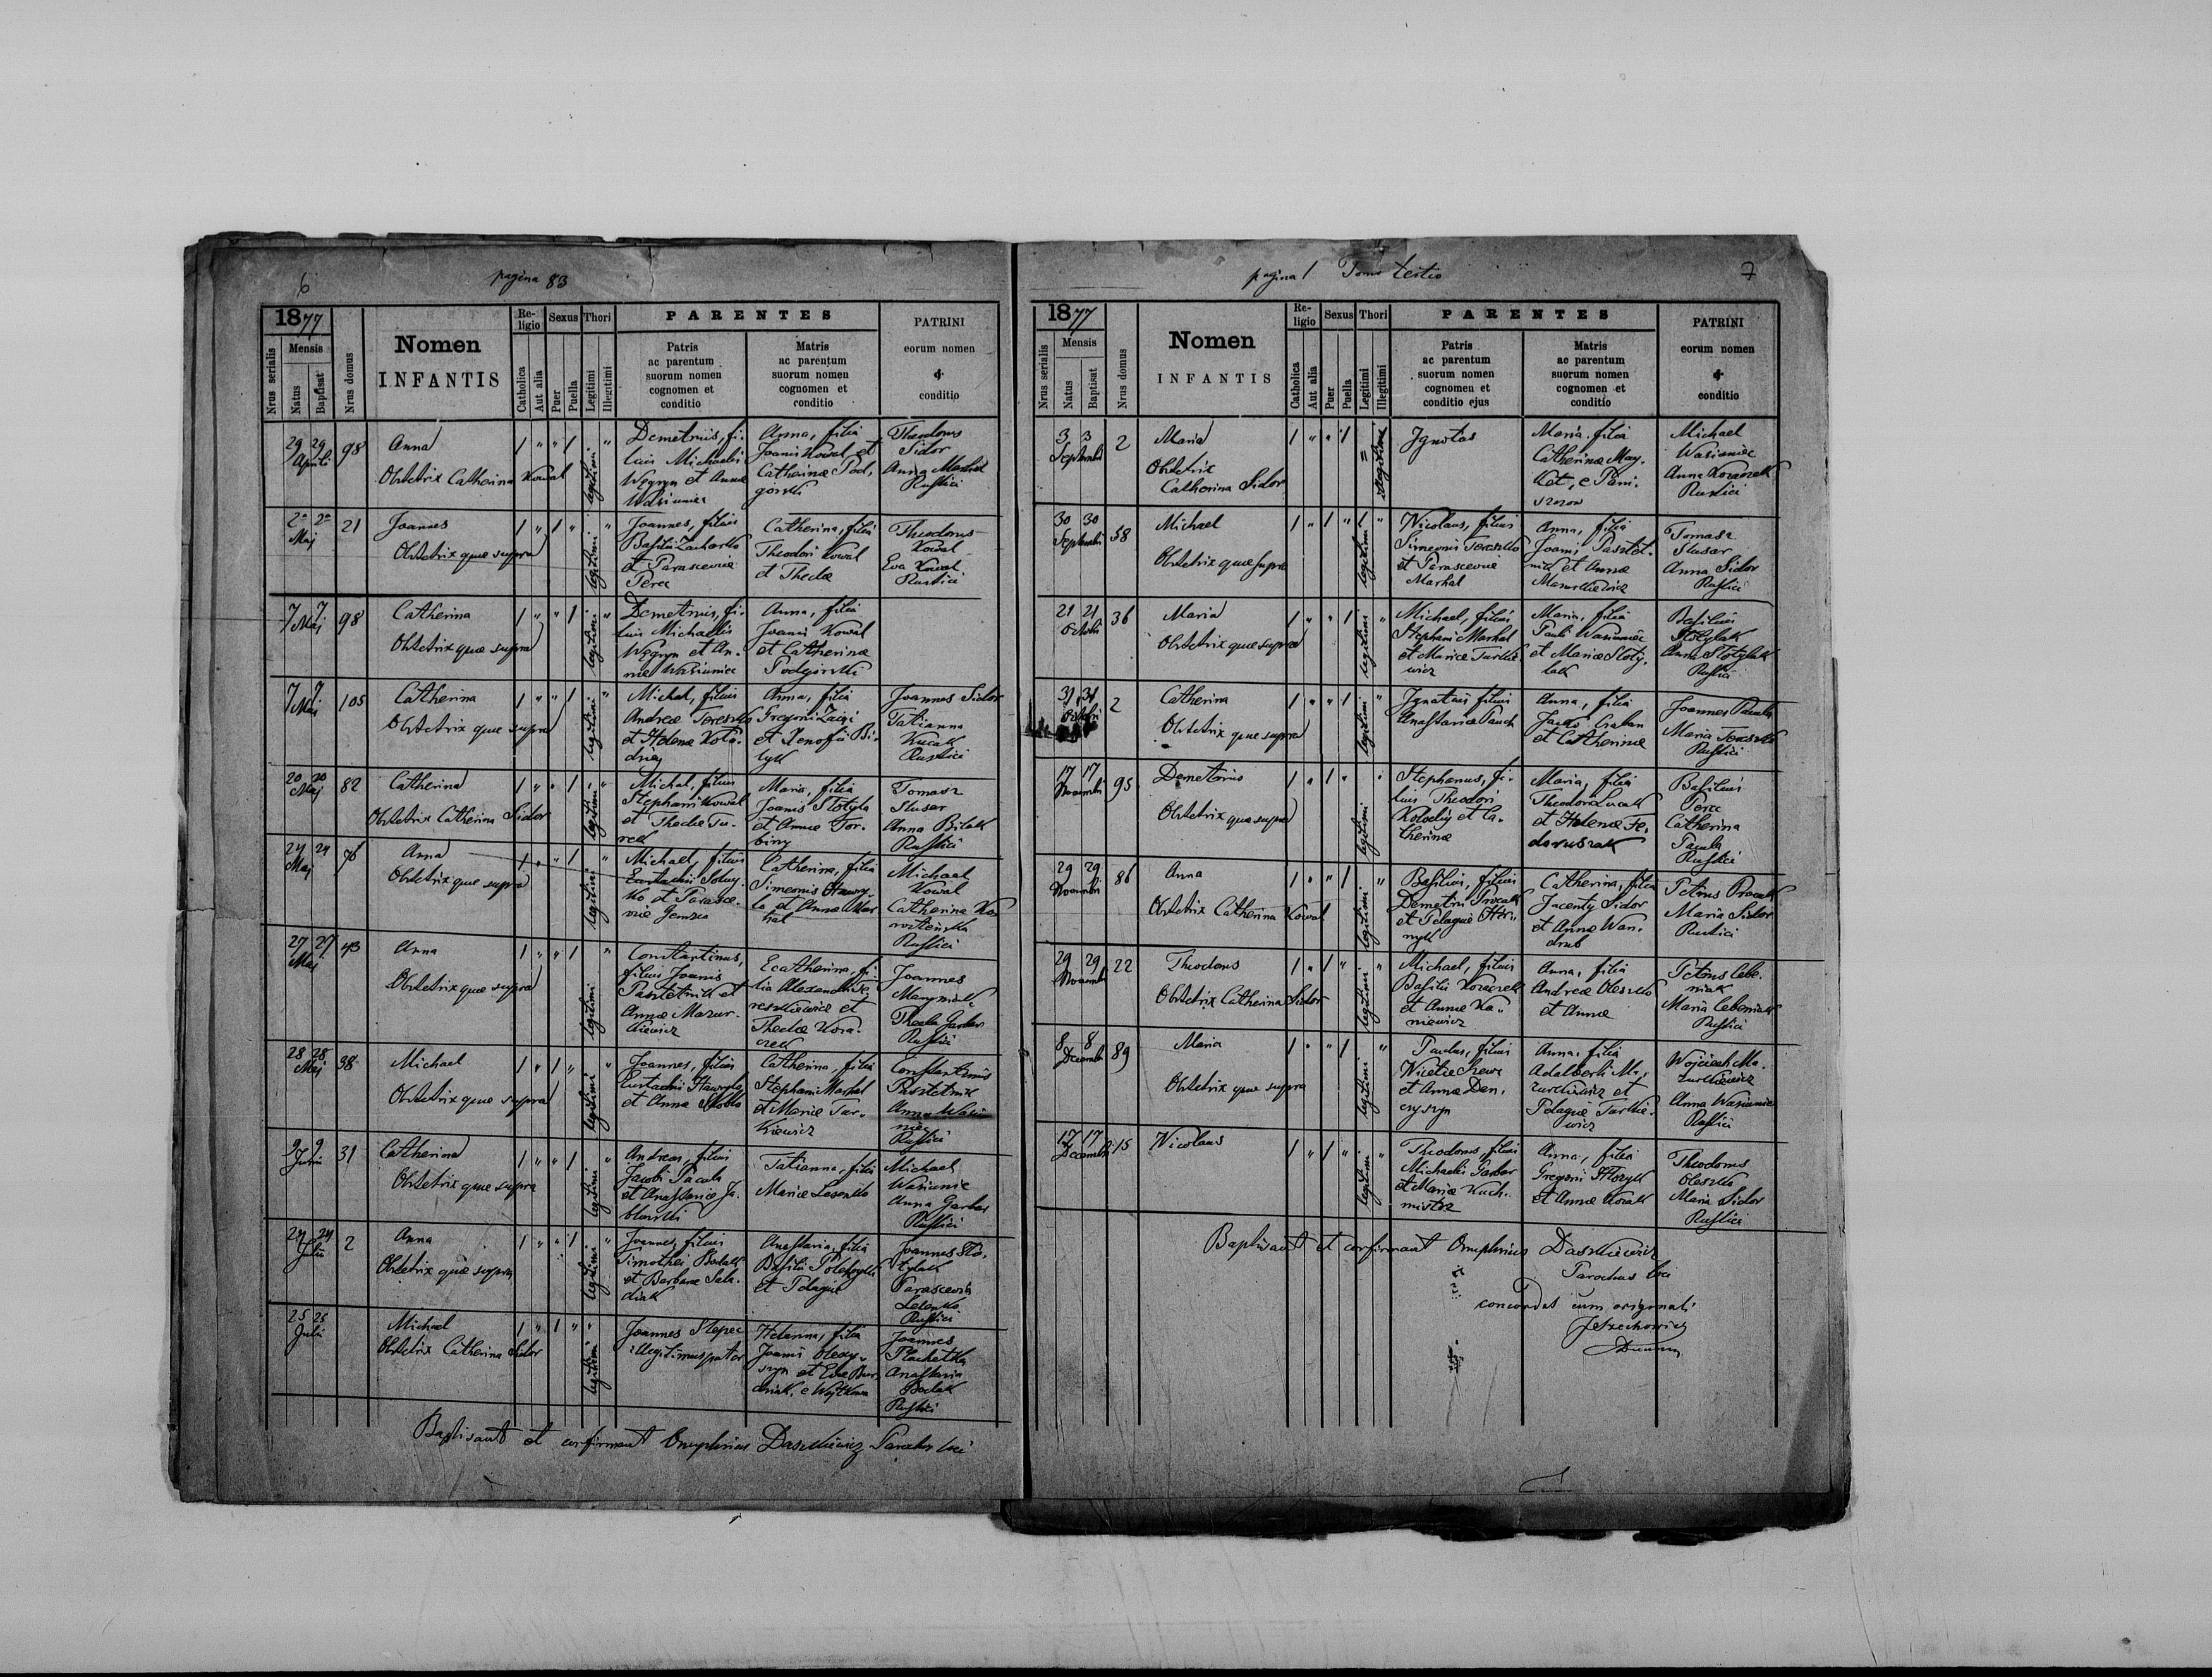 6
pagina 83
1877
Nrus serialis
Mensis
Natus
Baptisat
Nrus domus
Nomen
INFANTIS
Religio
Catholica
Aut alia
Sexus
Puer
Puella
Thori
Legitimi
Illegitimi
PARENTES
Patris
ac parentum
suorum nomen
cognomen et
conditio
Matris
ac parentum
suorum nomen
cognomen et
conditio
PATRINI
eorum nomen
&
conditio
29 29
Aprili
98
Anna
Obstetrix Catherina Kowal
1 " " 1
legitimi
"
Demetrius, fi-
lius Michaelis
Węgryn et Annæ
Wasiuniec
Anna, filia
Joanis Kowal et
Catherinæ Pod-
górski
Theodorus
Sidor
Anna Markal
Rustici
2 2
Maj
21
Joannes
Obstetrix quæ supra
1 " 1 "
legitimi
"
Joannes, filius
Basilii Zacharko
et Parasceviæ
Perec
Catherina, filia
Theodori Kowal
et Theclæ
Theodorus
Kowal
Eva Kowal
Rustici
7 7
Maj
98
Catherina
Obstetrix quæ supra
1 " " 1
legitimi
"
Demetrius, fi-
lius Michaelis
Węgryn et An-
næ Wasiuniec
Anna, filia
Joanis Kowal
et Catherinæ
Podgórski
7 7
Maj
105
Catherina
Obstetrix quæ supra
1 " " 1
legitimi
"
Michal, filius
Andreæ Tereszko
et Helenæ Koło-
dziej
Anna, filia
Gregorii
et Xenofii Bi-
łyk
Joannes Sidor
Tatianna
Kucak
Rustici
20 20
Maj
82
Catherina
Obstetrix Catherina Sidor
1 " " 1
legitimi
"
Michal, filius
Stephani Kowal
et Theclæ Tu-
rek
Maria, filia
Joanis Stotyła
et Annæ Tor-
biny
Tomasz
Slusar
Anna Bilak
Rustici
24 24
Maj
76
Anna
Obstetrix quæ supra
1 " " 1
legitimi
"
Michael, filius
Eustachii
et Parasce-
viæ
Catherina, filia
Simeonis Hawry-
ło et Annæ Mar-
kal
Michael
Kowal
Catherina
Rustici
27 27
Maj
43
Anna
Obstetrix quæ supra
1 " " 1
legitimi
"
Constantinus,
filius Joanis
Pasztetnik et
Annæ Mazur-
kiewicz
Ecatherina, fi-
lia Alexandri
et
Theclæ Kora-
czek
Joannes
Thecla Garbar
Rustici
28 28
Maj
38
Michael
Obstetrix quæ supra
1 " 1 "
legitimi
"
Joannes, filius
Eustachii Hawryło
et Anna
Catherina, filia
Stephani Markal
et Mariæ Tur-
kiewicz
Constantinus
Pasztetnik
Anna Wasiu-
niec
Rustici
9 9
31
Catherina
Obstetrix quæ supra
1 " " 1
legitimi
"
Andreas, filius
Jacobi Pacuła
et Anastasiæ Ja-
błoński
Tatianna, filia
Mariæ Lesenko
Michael
Wasiuniec
Anna Garbar
Rustici
24 24
Julii
2
Anna
Obstetrix quæ supra
1 " " 1
legitimi
"
Joannes, filius
Timothei Bodak
et Barbaræ Sała-
diak
Anastasia, filia
Basilii
et Pelagiæ
Joannes Sto-
tylak
Parascevia
Lesenko
Rustici
25 25
Julii
Michael
Obstetrix Catherina Sidor
1 " 1 "
legitimi
"
Joannes
illegitimus pater
Helenna, filia
Joanis Olexy-
szyn et Evæ
e Wojtkowa
Joannes
Plachetka
Anastasia
Bodak
Rustici
Baptisavit et confirmavit Onuphrius Daszkiewicz Parochus loci
pagina 1 Tomo tertio
7
1877
Nrus serialis
Mensis
Natus
Baptisat
Nrus domus
Nomen
INFANTIS
Religio
Catholica
Aut alia
Sexus
Puer
Puella
Thori
Legitimi
Illegitimi
PARENTES
Patris
ac parentum
suorum nomen
cognomen et
conditio ejus
Matris
ac parentum
suorum nomen
cognomen et
conditio
PATRINI
eorum nomen
&
conditio
3 3
Septembri
2
Maria
Obstetrix
Catherina Sidor
1 " " 1
illegitimi
Ignotus
Maria filia
Catherinæ May-
Michael
Wasiuniec
Anna Koraczek
Rustici
30 30
Septembri
58
Michael
Obstetrix quæ supra
1 " 1 "
legitimi
"
Nicolaus, filius
Simeonis Tereszko
et Parasceviæ
Markal
Anna, filia
Joanis Pasztet-
nik et Annæ
Mazurkiewicz
Tomasz
Slusar
Anna Sidor
Rustici
21 21
Octobri
36
Maria
Obstetrix quæ supra
1 " " 1
legitimi
"
Michael, filius
Stephani Markal
et Mariæ Turkie-
wicz
Maria, filia
Pauli Wasiuniec
et Mariæ Stoty-
lak
Basilius
Stotylak
Anna Stotylak
Rustici
31 31
Octobri
2
Catherina
Obstetrix quæ supra
1 " " 1
legitimi
"
Ignatius filius
Anastasiæ Pauch
Anna, filia
et Catherinæ
Joannes Pacuła
Maria Tereszko
Rustici
17 17
Novembri
95
Demetrius
Obstetrix quæ supra
1 " 1 "
legitimi
"
Stephanus, fi-
lius Theodori
Kołodiej et Ca-
therinæ
Maria, filia
Theodori Lucak
et Helenæ Fe-
doruszak
Basilius
Perec
Catherina
Pacuła
Rustici
29 29
Novembri
86
Anna
Obstetrix Catherina Kowal
1 " " 1
legitimi
"
Basilius, filius
Demetrii Procak
et Pelagiæ
Catherina, filia
Jacenty Sidor
et Annæ Wan-
drub
Petrus Procak
Maria Sidor
Rustici
29 29
Novembri
22
Theodorus
Obstetrix Catherina Sidor
1 " 1 "
legitimi
"
Michael, filius
Basilii Koraczek
et Annæ Ka-
niewicz
Anna, filia
Andreæ Oleszko
et Annæ
Petrus Cebe-
niak
Maria Cebeniak
Rustici
8 8
Decembri
89
Maria
Obstetrix quæ supra
1 " " 1
legitimi
"
Paulus, filius
Nicetæ Szewc
et Annæ Den-
czyszyn
Anna, filia
Adalberti Ma-
zurkiewicz et
Pelagiæ Turkie-
wicz
Wojciech Ma-
zurkiewicz
Anna Wasiuniec
Rustici
17 17
Decembri
15
Nicolaus
1 " 1 "
legitimi
"
Theodorus, filius
Michaelis Garbar
et Mariæ Kuch-
mistrz
Anna, filia
Gregorii
et Annæ Kozak
Theodorus
Oleszko
Maria Sidor
Rustici
Baptisavit et confirmavit Onuphrius Daszkiewicz
Parochus loci
concordat cum originali